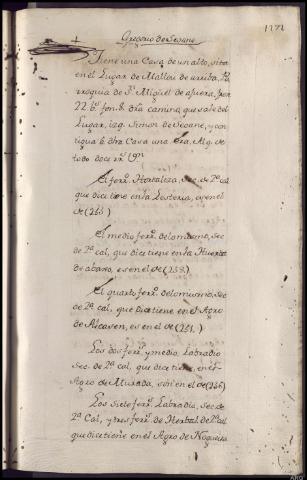 1272
Gregorio de Seoane
Tiene una Casa de un alto, sita
en el Lugar de Mallou de arriba, Pa
rroquia de Sn. Miguel de afuera,
22 bs. fon. 8. dra camino, que sale del
Lugar, izq. Simon de Seoane, y con
tigua á dha Casa una era, Alq. de
todo doce rrs. Von.
El ferrdo. Hortaliza, Sec. de 2ª cal
que dice tiene en la es en el
de (265)
El medio ferrdo. de lo mismo, sec
de 2ª cal, que dice tiene en la Huerta
de abaxo, es en el de (253)
El quarto ferrdo. de lo mismo, sec
de 2ª cal, que dice tiene en el Agro
de es en el de (251.)
Los dos ferrs. y medio Labradio
sec. de 2ª cal, que dice tiene, en el
Agro de Murada, són en el de (246)
Los siete ferrs. Labradio, sec. de
2ª Cal, y tres ferrs. de Herbal de 2ª cal
que dice tiene en el Agro de Nogueira